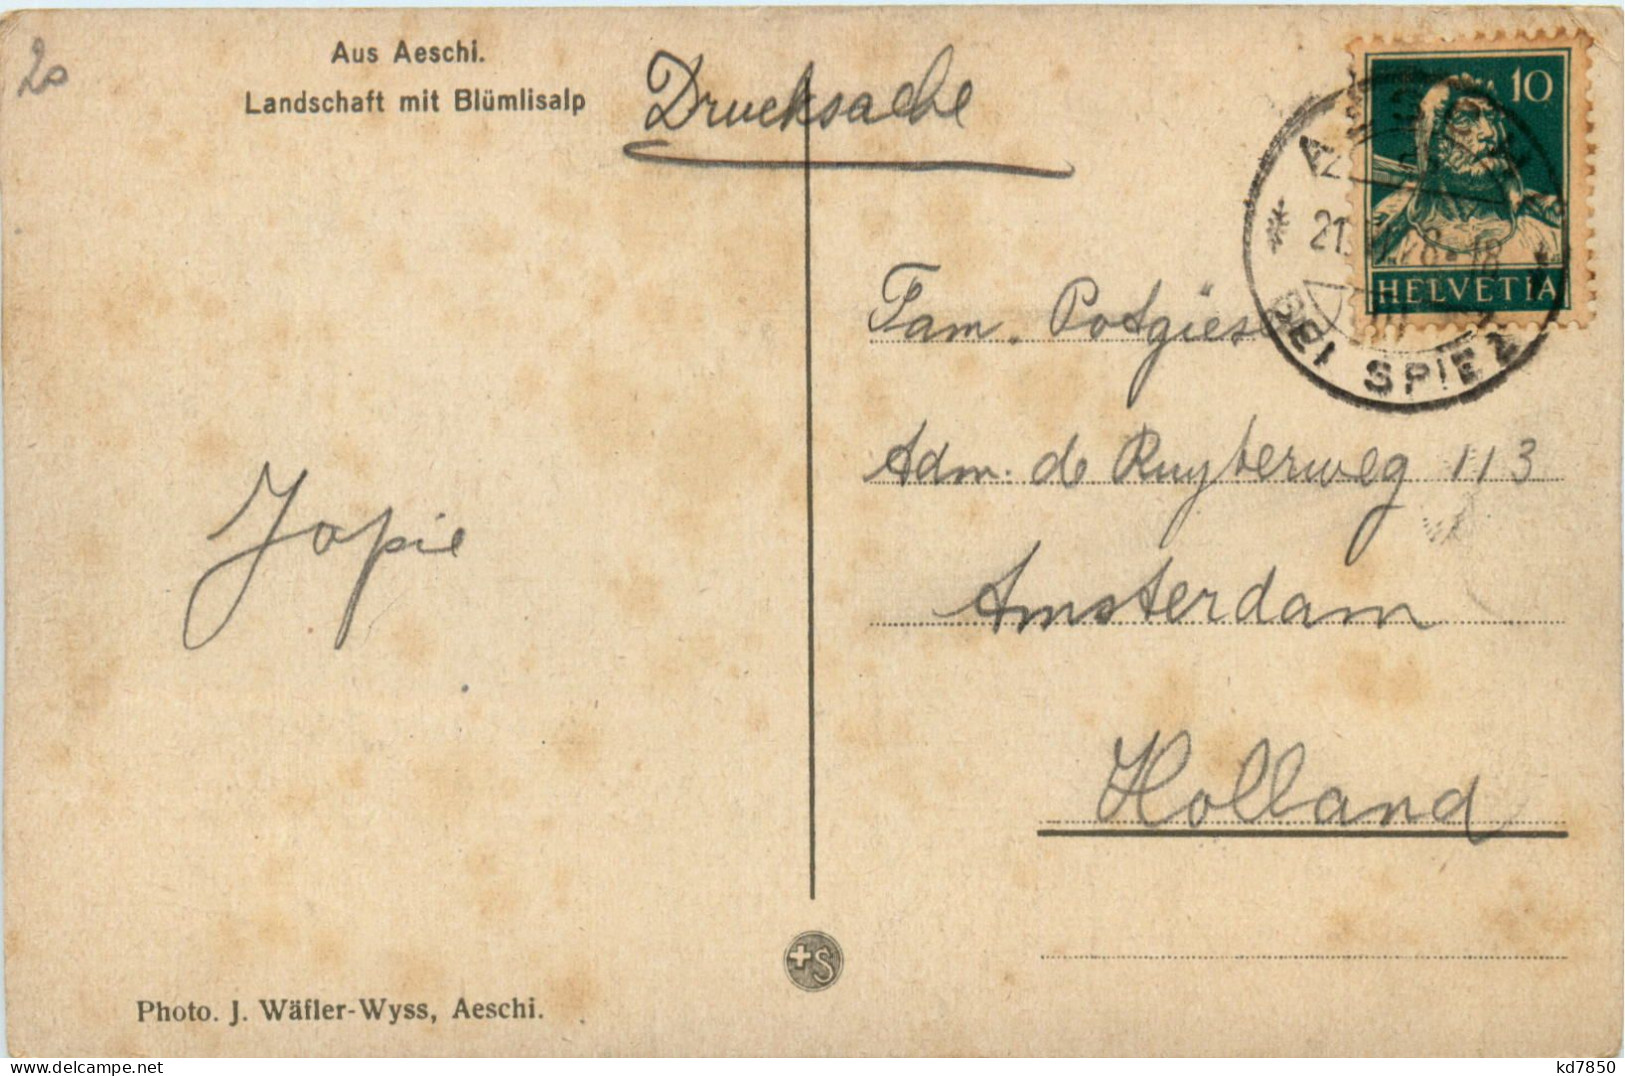 20
Aus Aeschi.
Landschaft mit Blümlisalp
Drucksache
10
HELVETIA
AESCHI
21.
BEI SPIEZ
Fam. Potgies
Adm. de Ruyterweg 113
Amsterdam
Holland
Jopie
+S
Photo. J. Wäfler-Wyss, Aeschi.
kd7850